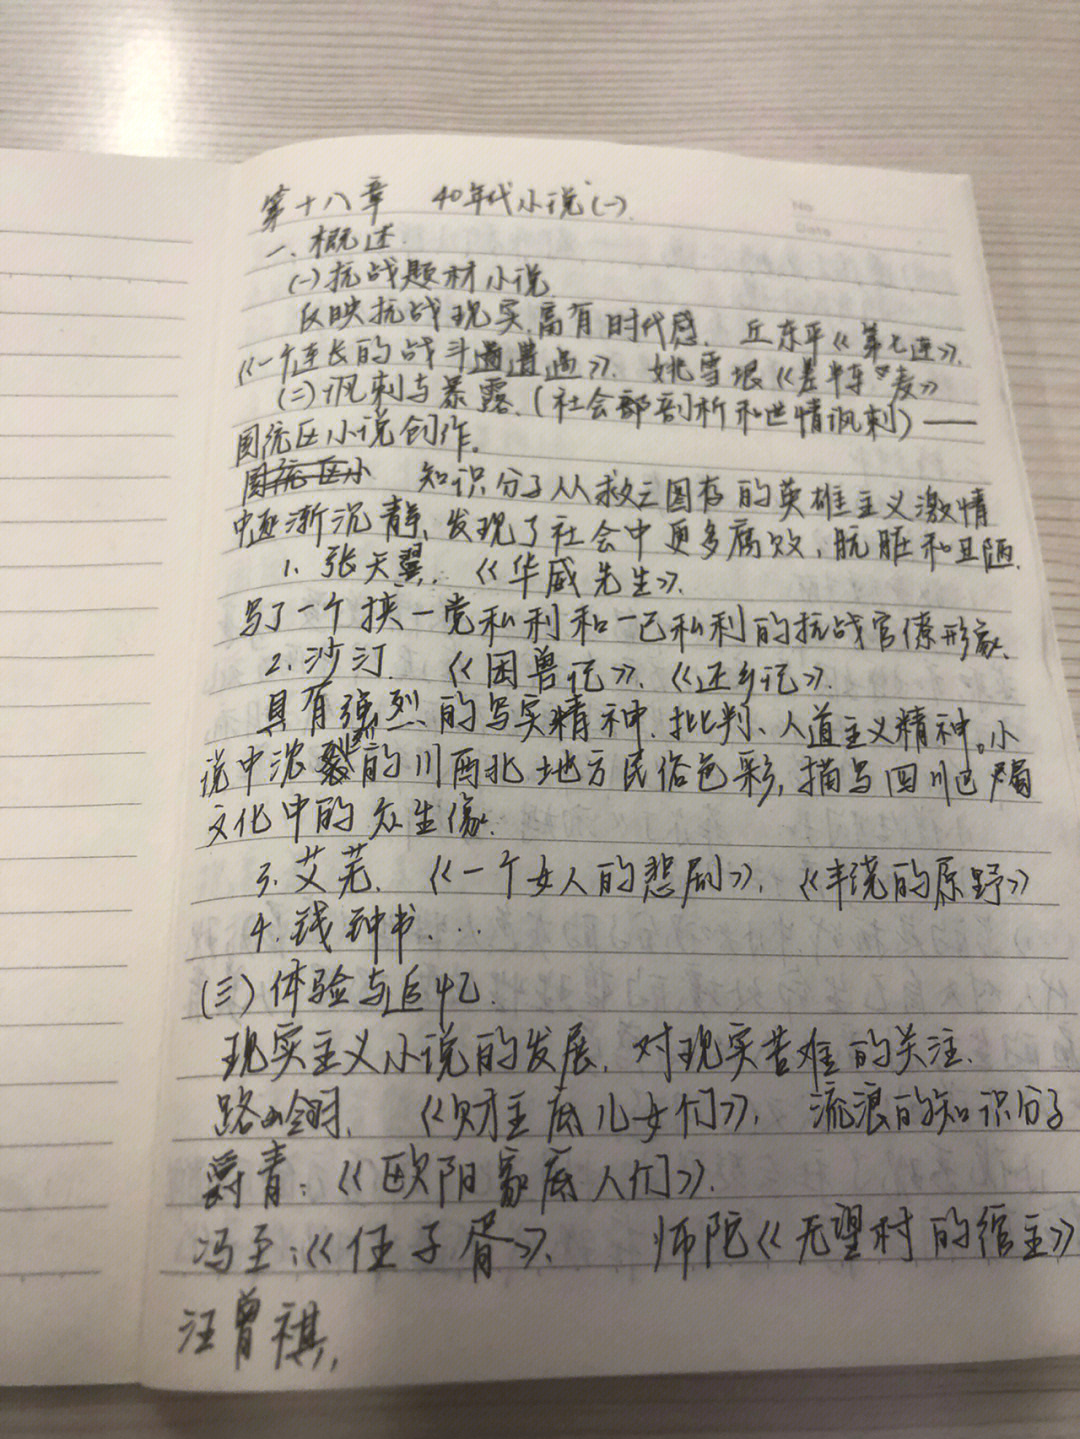 第十八章 40年代小说(一).
一、概述.
(一)抗战题材小说
反映抗战现实,富有时代感. 丘东平《第七连》.
《一个连长的战斗遭遇》. 姚雪垠《差半车麦》
(二)讽刺与暴露.(社会部剖析和世情讽刺)——
国统区小说创作.
国统区小 知识分子从救亡图存的英雄主义激情
中逐渐沉静、发现了社会中更多腐败,肮脏和丑陋.
1. 张天翼. 《华威先生》.
写了一个挟一党私利和一己私利的抗战官僚形象.
2. 沙汀. 《困兽记》. 《还乡记》.
具有强烈的写实精神.批判、人道主义精神。小
说中浓烈的川西北地方民俗色彩,描写四川巴蜀
文化中的众生像.
3. 艾芜. 《一个女人的悲剧》. 《丰饶的原野》
4. 钱钟书...
(三)体验与追忆.
现实主义小说的发展. 对现实苦难的关注.
路翎. 《财主底儿女们》. 流浪的知识分子
爵青:《欧阳家底人们》.
冯至:《伍子胥》. 师陀《无望村的馆主》
汪曾祺,